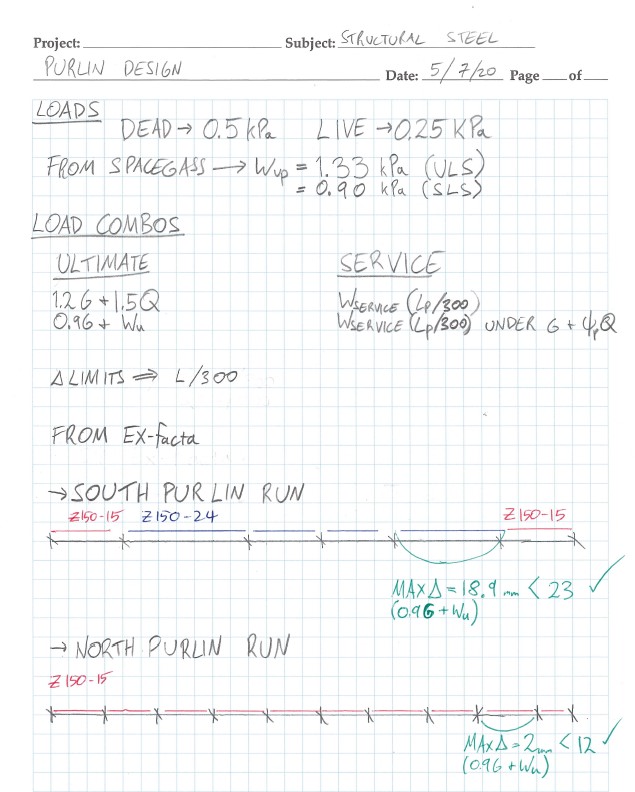 Project: Subject: STRUCTURAL STEEL
PURLIN DESIGN Date: 5/7/20 Page of
LOADS
DEAD → 0.5 kPa LIVE → 0.25 KPa
FROM SPACEGASS → Wup = 1.33 kPa (ULS)
= 0.90 kPa (SLS)
LOAD COMBOS
ULTIMATE SERVICE
1.2G + 1.5Q WSERVICE (Lp/300)
0.9G + Wu WSERVICE (Lp/300) UNDER G + ψpQ
Δ LIMITS ⇒ L/300
FROM EX-facta
→ SOUTH PURLIN RUN
Z150-15 Z150-24 Z150-15
MAX Δ = 18.9 mm < 23 ✓
(0.9G + Wu)
→ NORTH PURLIN RUN
Z150-15
MAX Δ = 2mm < 12 ✓
(0.9G + Wu)